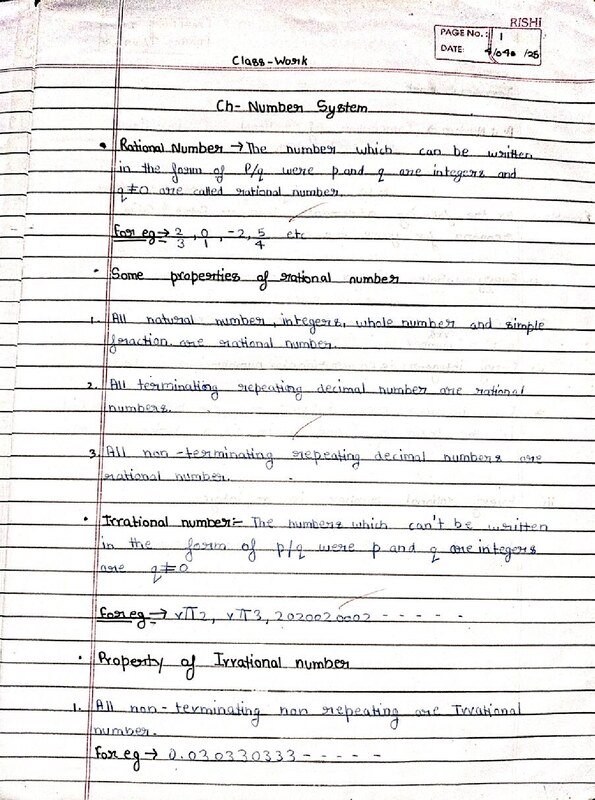 RISHI
PAGE No.: 1
DATE: 4/04/25
Class-Work
Ch- Number System
• Rational Number → The number which can be written
in the form of P/q were p and q are integers and
q≠0 are called rational number.
For eg → 2/3, 0/1, -2, 5/4 etc
• Some properties of rational number
1. All natural number, integers, whole number and simple
fraction are rational number.
2. All terminating repeating decimal number are rational
numbers.
3. All non-terminating repeating decimal numbers are
rational number.
• Irrational number:- The numbers which can't be written
in the form of p/q were p and q are integers
are q≠0
For eg → √π2, √π3, 2020020002 - - - - -
• Property of Irrational number
1. All non-terminating non repeating are Irrational
number.
For eg → 0.030330333 - - - - -